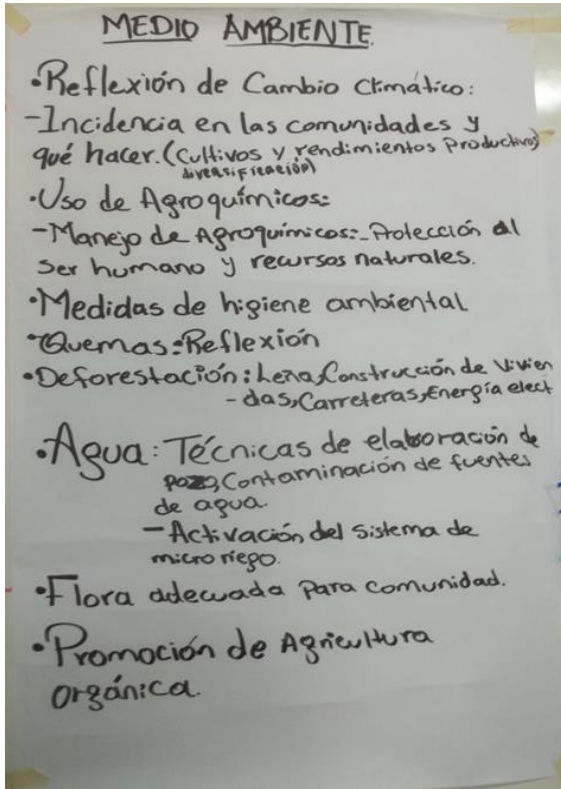 MEDIO AMBIENTE.
•Reflexión de Cambio Climático:
-Incidencia en las comunidades y
qué hacer. (Cultivos y rendimientos Productivos)
diversificación)
•Uso de Agroquímicos:
-Manejo de Agroquímicos:-Protección al
ser humano y recursos naturales.
•Medidas de higiene ambiental
•Quemas:Reflexión
•Deforestación: Leña,Construcción de Vivien
-das,Carreteras,Energía elect
•Agua: Técnicas de elaboración de
pozo,Contaminación de fuentes
de agua.
-Activación del sistema de
micro riego.
•Flora adecuada para comunidad.
•Promoción de Agricultura
orgánica.